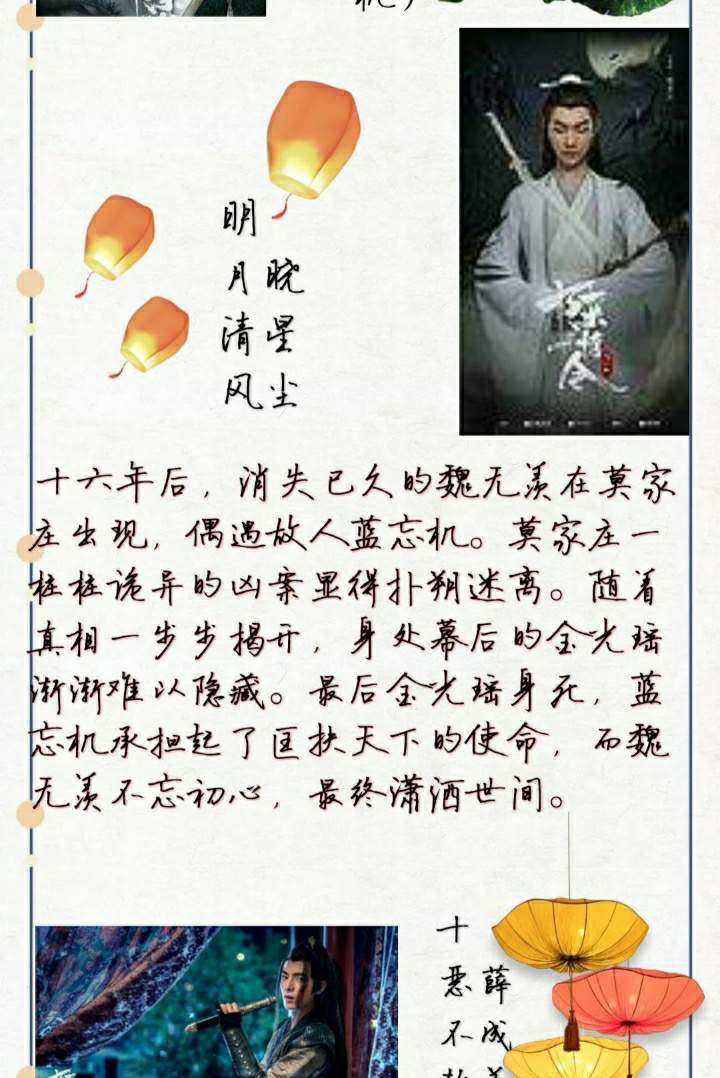 机）
明
月晓
清星
风尘
陈情令
十六年后，消失已久的魏无羡在莫家
庄出现，偶遇故人蓝忘机。莫家庄一
桩桩诡异的凶案显得扑朔迷离。随着
真相一步步揭开，身处幕后的金光瑶
渐渐难以隐藏。最后金光瑶身死，蓝
忘机承担起了匡扶天下的使命，而魏
无羡不忘初心，最终潇洒世间。
十
恶薛
不成